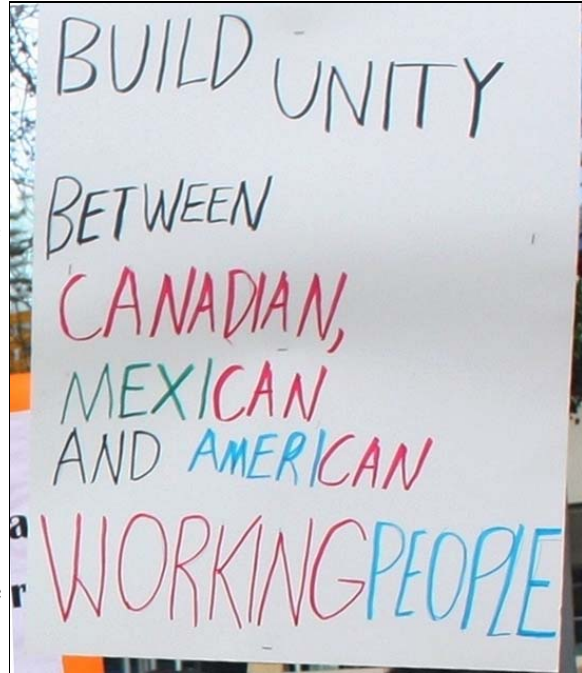 BUILD UNITY
BETWEEN
CANADIAN,
MEXICAN
AND AMERICAN
WORKING PEOPLE
a
r